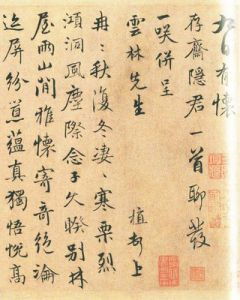 九日有懷
存齋隱君一首聊發
一咲併呈
雲林先生
植頓上
冉冉秋復冬淒淒寒栗烈
澒洞風塵際念子久暌別林
屋雨山間雅懷寄奇絕論
迹屏紛囂蘊真獨悟悅高